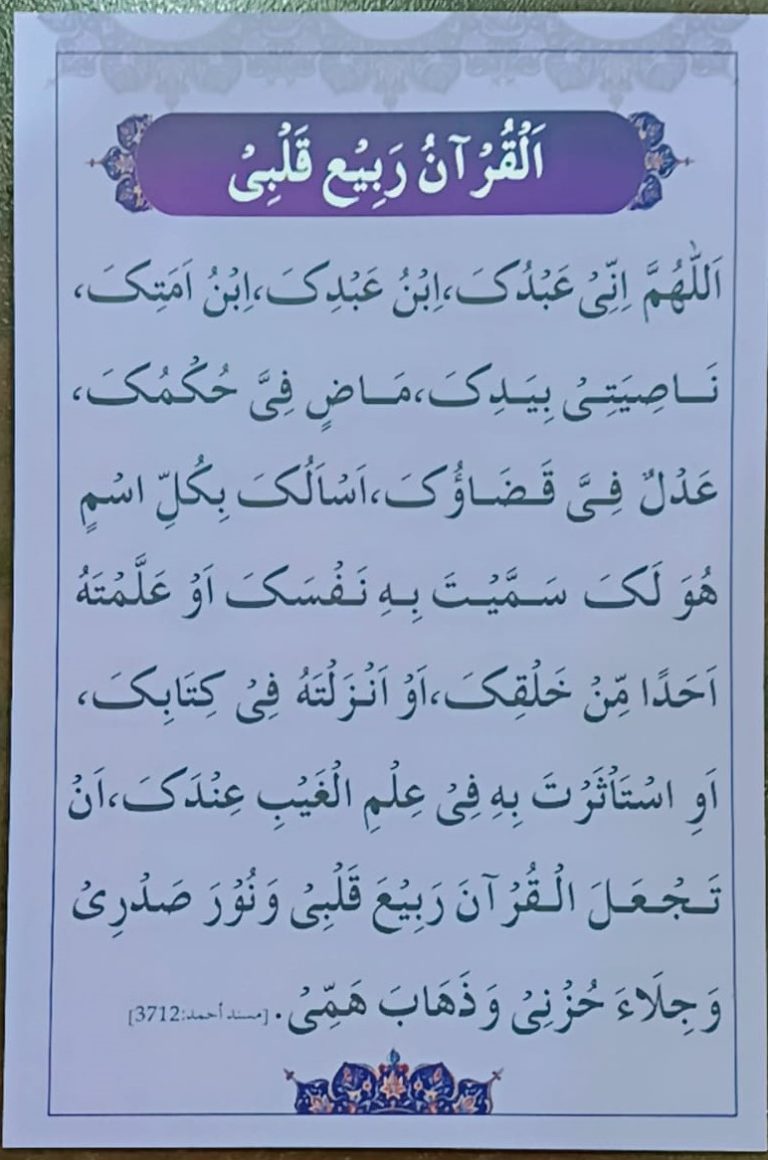 اَلْقُرْآنُ رَبِیْع قَلْبِیْ
اَللّٰهُمَّ اِنِّیْ عَبْدُکَ،اِبْنُ عَبْدِکَ،اِبْنُ اَمَتِکَ،
نَـاصِیَتِـیْ بِیَـدِکَ،مَـاضٍ فِیَّ حُکْمُکَ،
عَدْلٌ فِـیَّ قَـضَـاؤُکَ،اَسْاَلُکَ بِکُلِّ اسْمٍ
هُوَ لَکَ سَـمَّیْـتَ بِـهِ نَـفْسَکَ اَوْ عَلَّمْتَهُ
اَحَدًا مِّنْ خَلْقِکَ،اَوْ اَنْـزَلْتَهُ فِیْ کِتَابِکَ،
اَوِ اسْتَاْثَرْتَ بِهِ فِیْ عِلْمِ الْغَیْبِ عِنْدَکَ،اَنْ
تَـجْـعَـلَ الْـقُرْآنَ رَبِیْعَ قَلْبِیْ وَنُوْرَ صَدْرِیْ
وَجِلَاءَ حُزْنِیْ وَذَهَابَ هَمِّیْ. [مسند أحمد:3712]